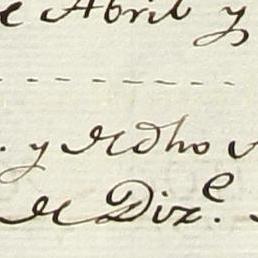 e Abril y
. y de dho
de Diz.e